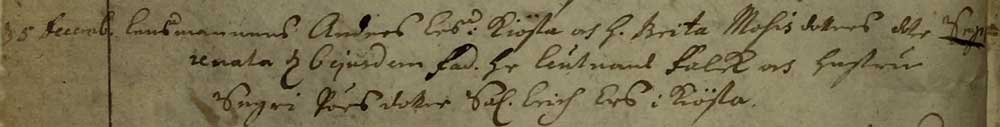 5 Decemb. lensmannens Anders Ers: i Kiösta och h. Brita Mats dotters dotr
renata d 6 ejusdem fad. hr leutnant Falck och hustru
Ingri Pers dotter Sal. Erich Ers i Kiösta.